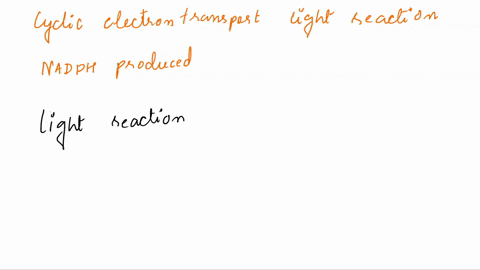 Cyclic electron transport light reaction
NADPH produced
light reaction